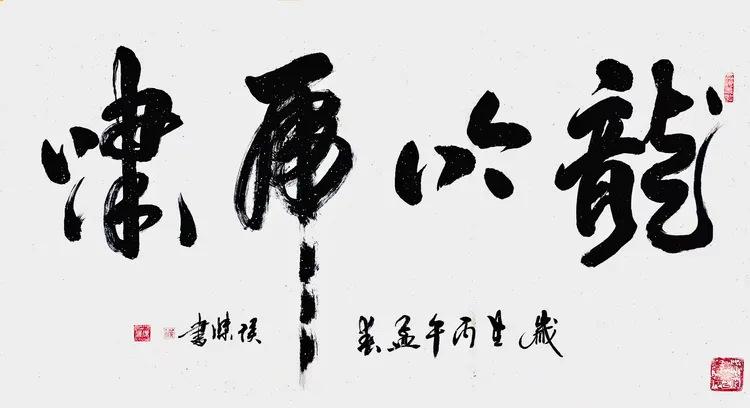 龍吟虎嘯
歲在丙午孟春
侯 書